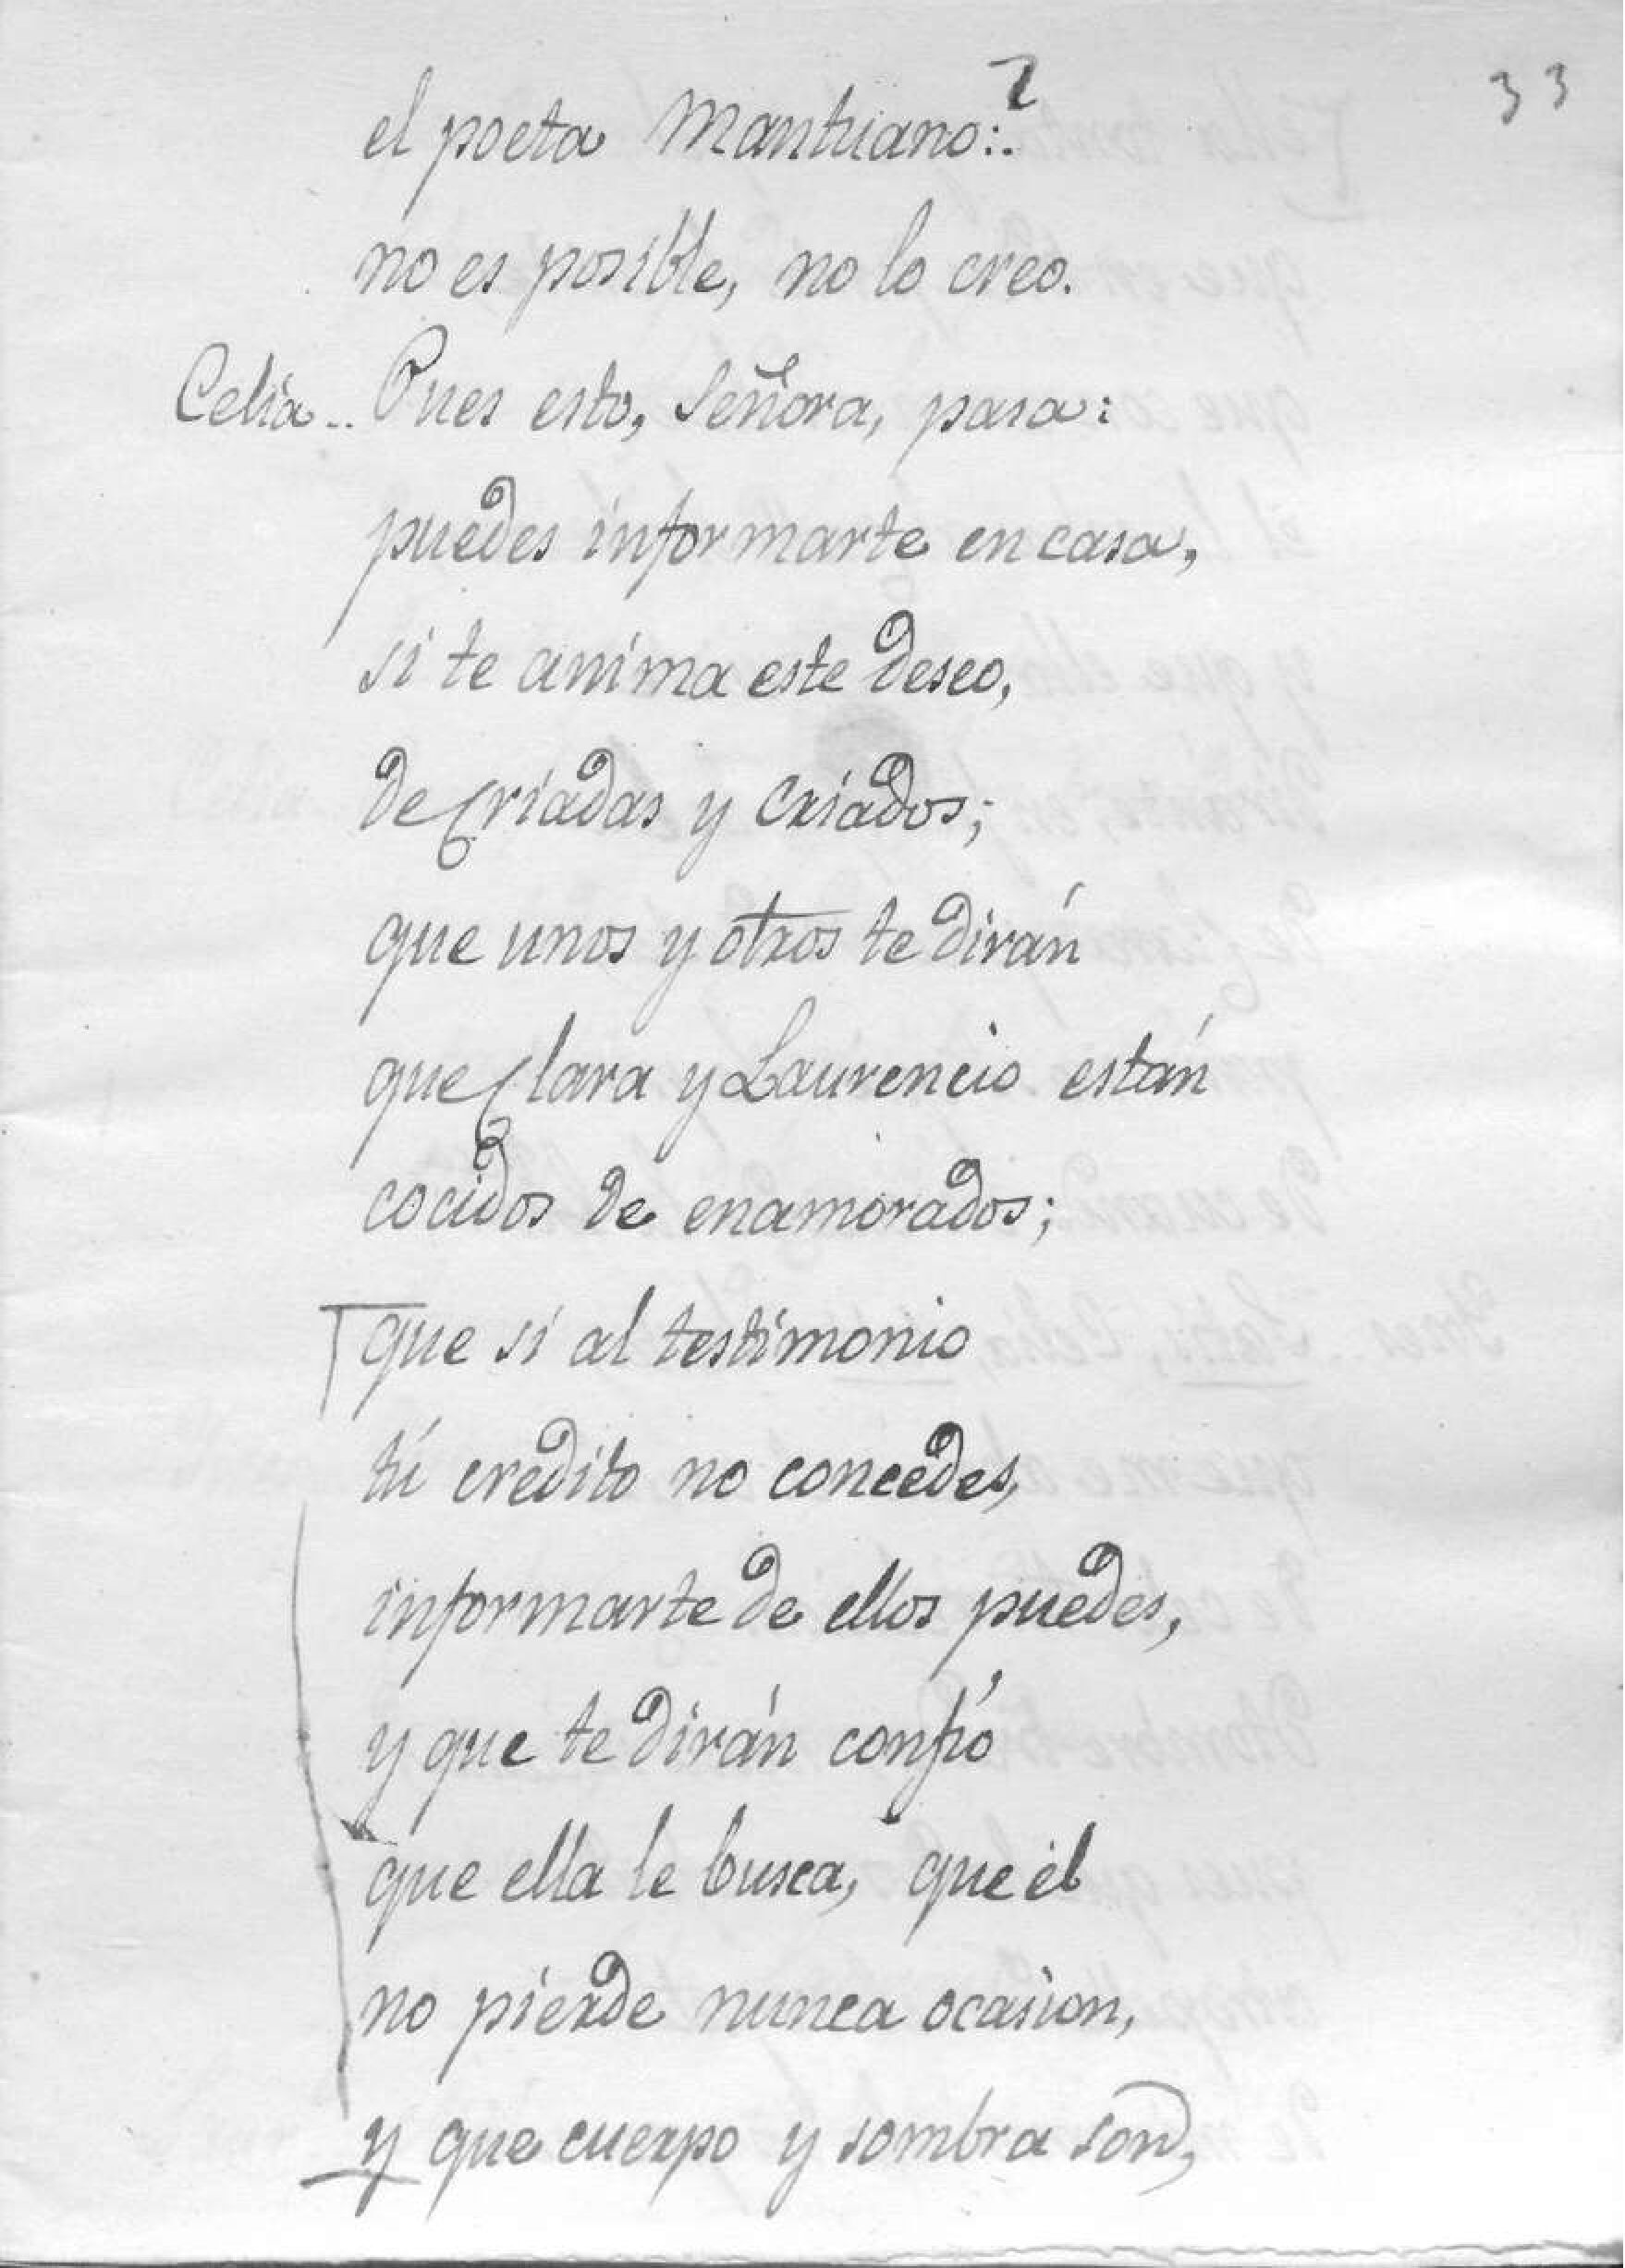 33
el poeta Mantuano:?
no es posible, no lo creo.
Celia.. Pues esto, Señora, pasa:
puedes informarte en casa,
si te anima este deseo,
de Criadas y criados;
que unos y otros te dirán
que Clara y Laurencio están
cocidos de enamorados;
que si al testimonio
tú credito no concedes,
informarte de ellos puedes,
y que te dirán confío
que ella le busca, que él
no pierde nunca ocasion,
y que cuerpo y sombra son,